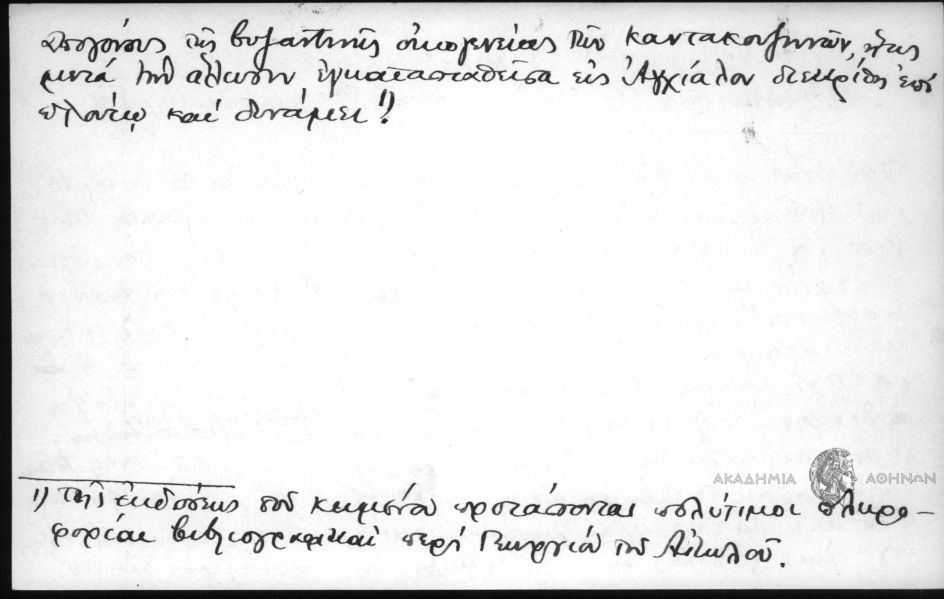 ἀπογόνους τῆς βυζαντινῆς οἰκογενείας τῶν Καντακουζηνῶν, ἥτις
μετά τήν ἅλωσιν ἐγκατασταθεῖσα εἰς Ἀγχίαλον διεκρίθη ἐπί
πλούτῳ καί δυνάμει 1)
ΑΚΑΔΗΜΙΑ ΑΘΗΝΩΝ
1) Τῆς ἐκδόσεως τοῦ κειμένου προτάσσονται πολύτιμοι πληρο-
φορίαι βιβλιογραφικαί περί Γεωργίου τοῦ Αἰτωλοῦ.